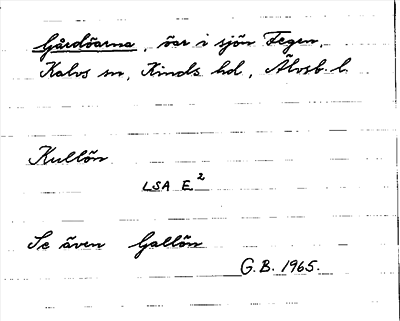 Gårdöarna, öar i sjön Fegen,
Kalvs sn, Kinds hd, Älvsb. l.
Kullön
LSA E²
Se även Gallön
G.B. 1965.